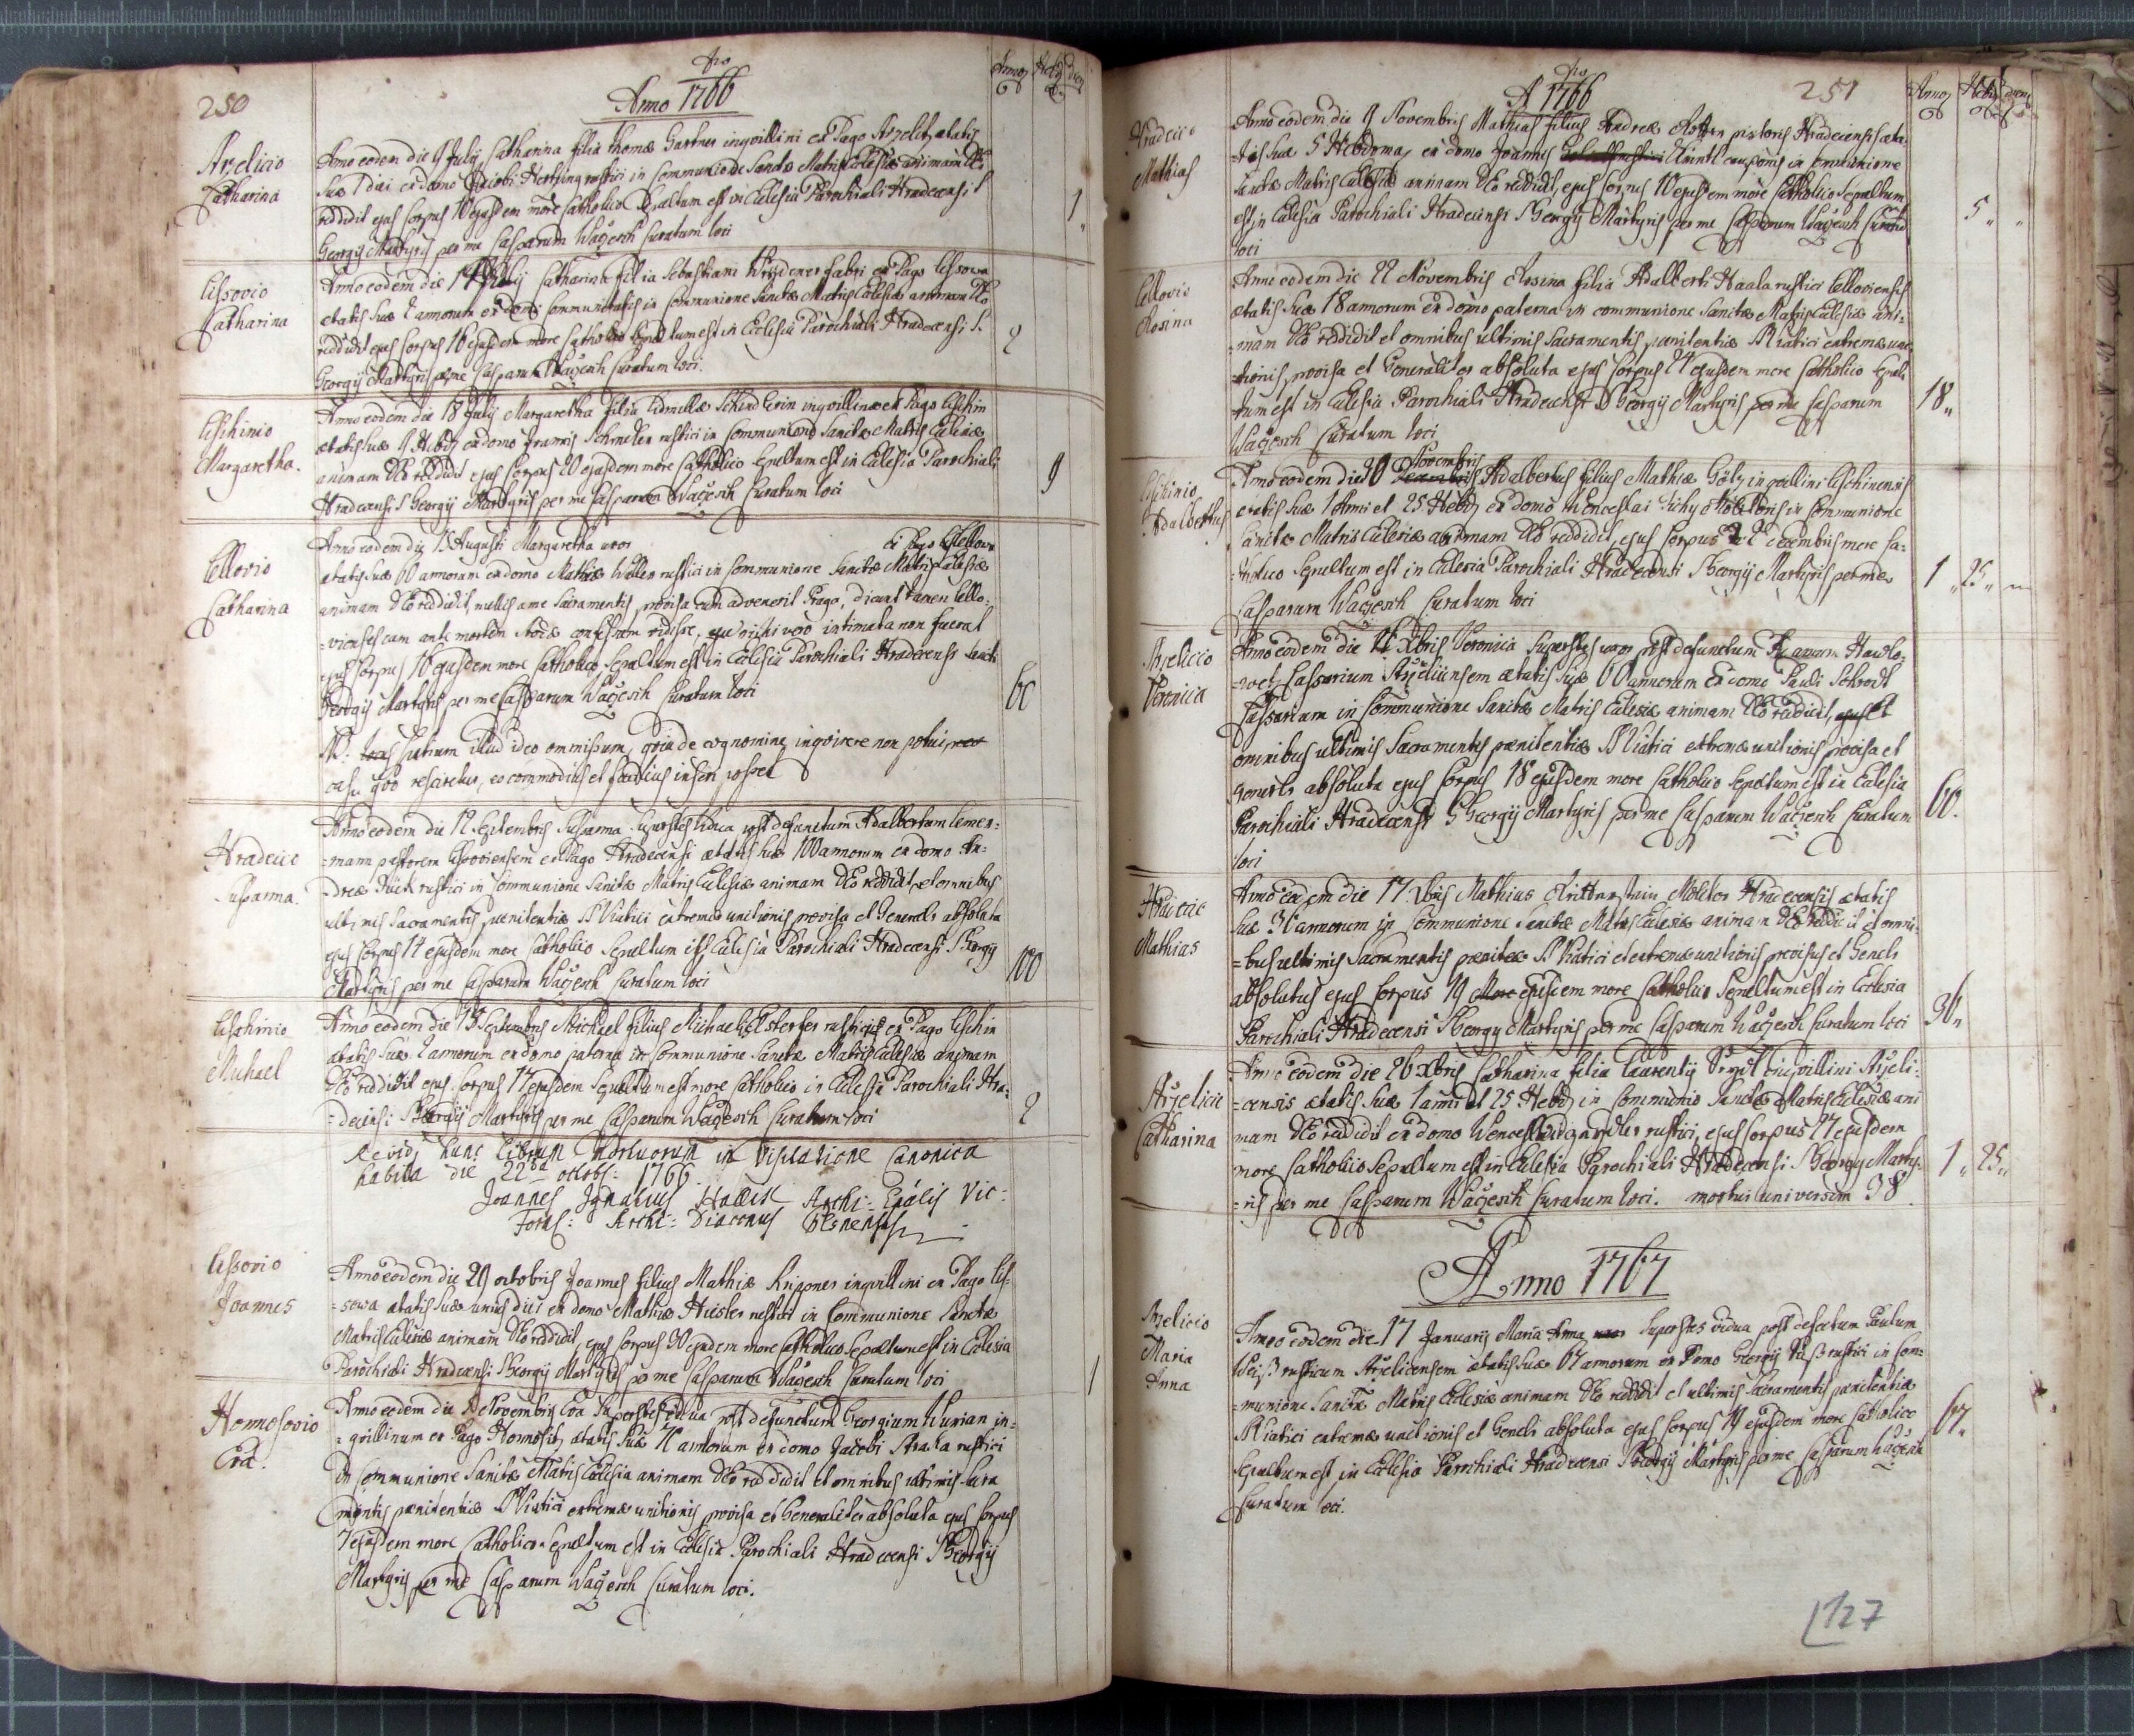 250
pro
Anno 1766
Annor
Hebd
dier
Arzelicio
Catharina
Anno eodem die 9 July Catharina filia Thomæ Gartner inqvillini ex Pago Arzelitz ætatis
Suæ 1 diei ex domo Jacobi Hertzing rustici in communione Sanctæ Matris Ecclesiæ animam Deo
reddidit ejus Corpus 10 ejusdem more Catholico Sepultum est in Ecclesia Parochiali Hradecensi S
Georgij Martyris per me Casparum Waczesch Curatum loci
1
Lissovio
Catharina
Anno eodem die 14 July Catharina filia Sebastiani fabri ex Pago Lissowa
ætatis Suæ 2 annorum ex domo Communitatis in Communione Sanctæ Matris Ecclesiæ animam Deo
reddidit ejus Corpus 16 ejusdem more Catholico Sepultum est in Ecclesia Parochiali Hradecensi S.
Georgij Martyris per me Casparum Waczesch Curatum loci.
2
Lischinio
Margaretha.
Anno eodem die 18 July Margaretha filia Lidmillæ inqvillinæ ex Pago Lischin
ætatis Suæ 9 Hebd ex domo rustici in Communione Sanctæ Matris Ecclesiæ
animam Deo reddidit ejus Corpus 20 ejusdem more Catholico Sepultum est in Ecclesia Parochiali
Hradecensi S Georgij Martyris per me Casparum Waczesch Curatum loci
9
Lellovio
Catharina
Anno eodem die 15 Augusti Margaretha uxor ex Pago Lellowa
ætatis Suæ 60 annorum ex domo Mathiæ Weller rustici in Communione Sanctæ Matris Ecclesiæ
animam Deo reddidit, nullis a me Sacramentis provisa cum advenerit Prago, dicunt tamen Lello-
=vienses eam ante mortem confessam fuisse, mihi vero intimata non fuerat
ejus Corpus 16 ejusdem more Catholico Sepultum est in Ecclesia Parochiali Hradecensi Sancti
Georgij Martyris per me Casparum Waczesch Curatum loci
60
NB: spatium illud ideo ommissum, qvia de cognomine inqvirere non potui,
casu qvo resciretur, eo commodius et facilius inseri posset
Hradecio
Susanna.
Anno eodem die 12 Septembris Susanna Superstes Vidua post defunctum Adalbertum Lemer-
=mann pastorem Lissoviensem ex Pago Hradecensi ætatis Suæ 100 annorum ex domo An-
=dreæ rustici in Communione Sanctæ Matris Ecclesiæ animam Deo reddidit, et omnibus
ultimis Sacramentis pænitentiæ SS Viatici extremæ unctionis provisa et Generals absoluta
ejus Corpus 14 ejusdem more Catholico Sepultum est Ecclesia Parochiali Hradecensi S Georgij
Martyris per me Casparum Waczesch Curatum loci
100
Lischinio
Michael
Anno eodem die 15 Septembris Michael filius Michaelis rustici ex Pago Lischin
ætatis Suæ 2 annorum ex domo paterna in Communione Sanctæ Matris Ecclesiæ animam
Deo reddidit ejus Corpus 17 ejusdem Sepultum est more Catholico in Ecclesia Parochiali Hra-
=decensi S Georgij Martyris per me Casparum Waczesch Curatum loci
2
Revidi hunc Librum Mortuorum in Visitatione Canonica
habita die 22da octobr: 1766.
Joannes Ignatius Archi: Epālis Vic:
Foran: Archi: Diaconus Plsnensis
Lissovio
Joannes
Anno eodem die 29 octobris Joannes filius Mathiæ inqvillini ex Pago Lis-
=sowa ætatis Suæ unius diei ex domo Mathiæ Heisler rustici in Communione Sanctæ
Matris Ecclesiæ animam Deo reddidit, ejus Corpus 30 ejusdem more Catholico Sepultum est in Ecclesia
Parochiali Hradecensi S Georgij Martyris per me Casparum Waczesch Curatum loci
1
Honnosovio
Eva.
Anno eodem die Novembris Eva Superstes Vidua post defunctum Georgium Wurian in-
=qvillinum ex Pago Honnositz ætatis Suæ annorum ex domo Jacobi Straka rustici
in Communione Sanctæ Matris Ecclesiæ animam Deo reddidit et omnibus ultimis Sacra
mentis pænitentiæ SS Viatici extremæ unctionis provisa et Generaliter absoluta ejus Corpus
7 ejusdem more Catholico Sepultum est in Ecclesia Parochiali Hradecensi S Georgij
Martyris per me Casparum Waczesch Curatum loci.
pro
A 1766
251
Annor
Hebd
dieru
Hradecio
Mathias
Anno eodem die 9 Novembris Mathias filius Andreæ pistoris Hradecensis æta-
=tis Suæ 5 Hebdoma ex domo Joannis cauponis in Communione
Sanctæ Matris Ecclesiæ animam Deo reddidit, ejus Corpus 10 ejusdem more Catholico Sepultum
est in Ecclesia Parochiali Hradecensi S Georgij Martyris per me Casparum Waczesch Curatum
loci
5
Lellovio
Rosina
Anno eodem die 22 Novembris Rosina filia Adalberti Haala rustici Lelloviensis
ætatis Suæ 18 annorum ex domo paterna in communione Sanctæ Matris Ecclesiæ ani-
=mam Deo reddidit et omnibus ultimis Sacramentis pænitentiæ SS Viatici extremæ unc
=tionis provisa et Generaliter absoluta ejus Corpus 24 ejusdem more Catholico Sepul-
tum est in Ecclesia Parochiali Hradecensi S Georgij Martyris per me Casparum
Waczesch Curatum loci
18
Lischinio
Adalbertus
Anno eodem die 30 Novembris Adalbertus filius Mathiæ Götz inqvillini Lischinensis
ætatis Suæ 1 Anni et 25 Hebd ex domo Wenceslai Molitoris in Communione
Sanctæ Matris Ecclesiæ animam Deo reddidit, ejus Corpus 2 Decembris more Ca-
=tholico Sepultum est in Ecclesia Parochiali Hradecensi S Georgij Martyris per me
Casparum Waczesch Curatum loci
1 25
Arzelicio
Veronica
Anno eodem die Xbris Veronica Superstes uxor post defunctum Hawlo-
=wetz Cassarium Arzelicensem ætatis Suæ 60 annorum ex domo Pauli Schrodt
Cassariam in Communione Sanctæ Matris Ecclesiæ animam Deo reddidit, et
omnibus ultimis Sacramentis pænitentiæ SS Viatici extremæ unctionis provisa et
generls absoluta ejus Corpus 18 ejusdem more Catholico Sepultum est in Ecclesia
Parochiali Hradecensi S Georgij Martyris per me Casparum Waczesch Curatum
loci
60.
Hradecio
Mathias
Anno eodem die 17 Xbris Mathias Molitor Hradecensis ætatis
Suæ 36 annorum in Communione Sanctæ Matris Ecclesiæ animam Deo reddidit et omni-
=bus ultimis Sacramentis pænitæ SS Viatici et extremæ unctionis provisus et Genrls
absolutus ejus Corpus 19 ejusdem more Catholico Sepultum est in Ecclesia
Parochiali Hradecensi S Georgij Martyris per me Casparum Waczesch Curatum loci
36
Arzelicio
Catharina
Anno eodem die 26 Xbris Catharina filia Laurentij inqvillini Arzeli-
=censis ætatis Suæ 1 anni et 25 Hebd in Communio Sanctæ Matris Ecclesiæ ani
mam Deo reddidit ex domo Wenceslai rustici, ejus Corpus 27 ejusdem
more Catholico Sepultum est in Ecclesia Parochiali Hradecensi S Georgij Marty-
=ris per me Casparum Waczesch Curatum loci. mortui universim 38
1 25
Anno 1767
Arzelicio
Maria
Anna
Anno eodem die 17 Januarij Maria Anna Superstes vidua post defunctum Paulum
Weiß rusticum Arzelicensem ætatis Suæ 67 annorum ex Domo Georgij rustici in Com-
=munione Sanctæ Matris Ecclesiæ animam Deo reddidit et ultimis Sacramentis pænitentiæ
SS Viatici extremæ unctionis et Genrls absoluta ejus Corpus 19 ejusdem more Catholico
Sepultum est in Ecclesia Parochiali Hradecensi S Georgij Martyris per me Casparum Waczesch
Curatum loci.
67
127